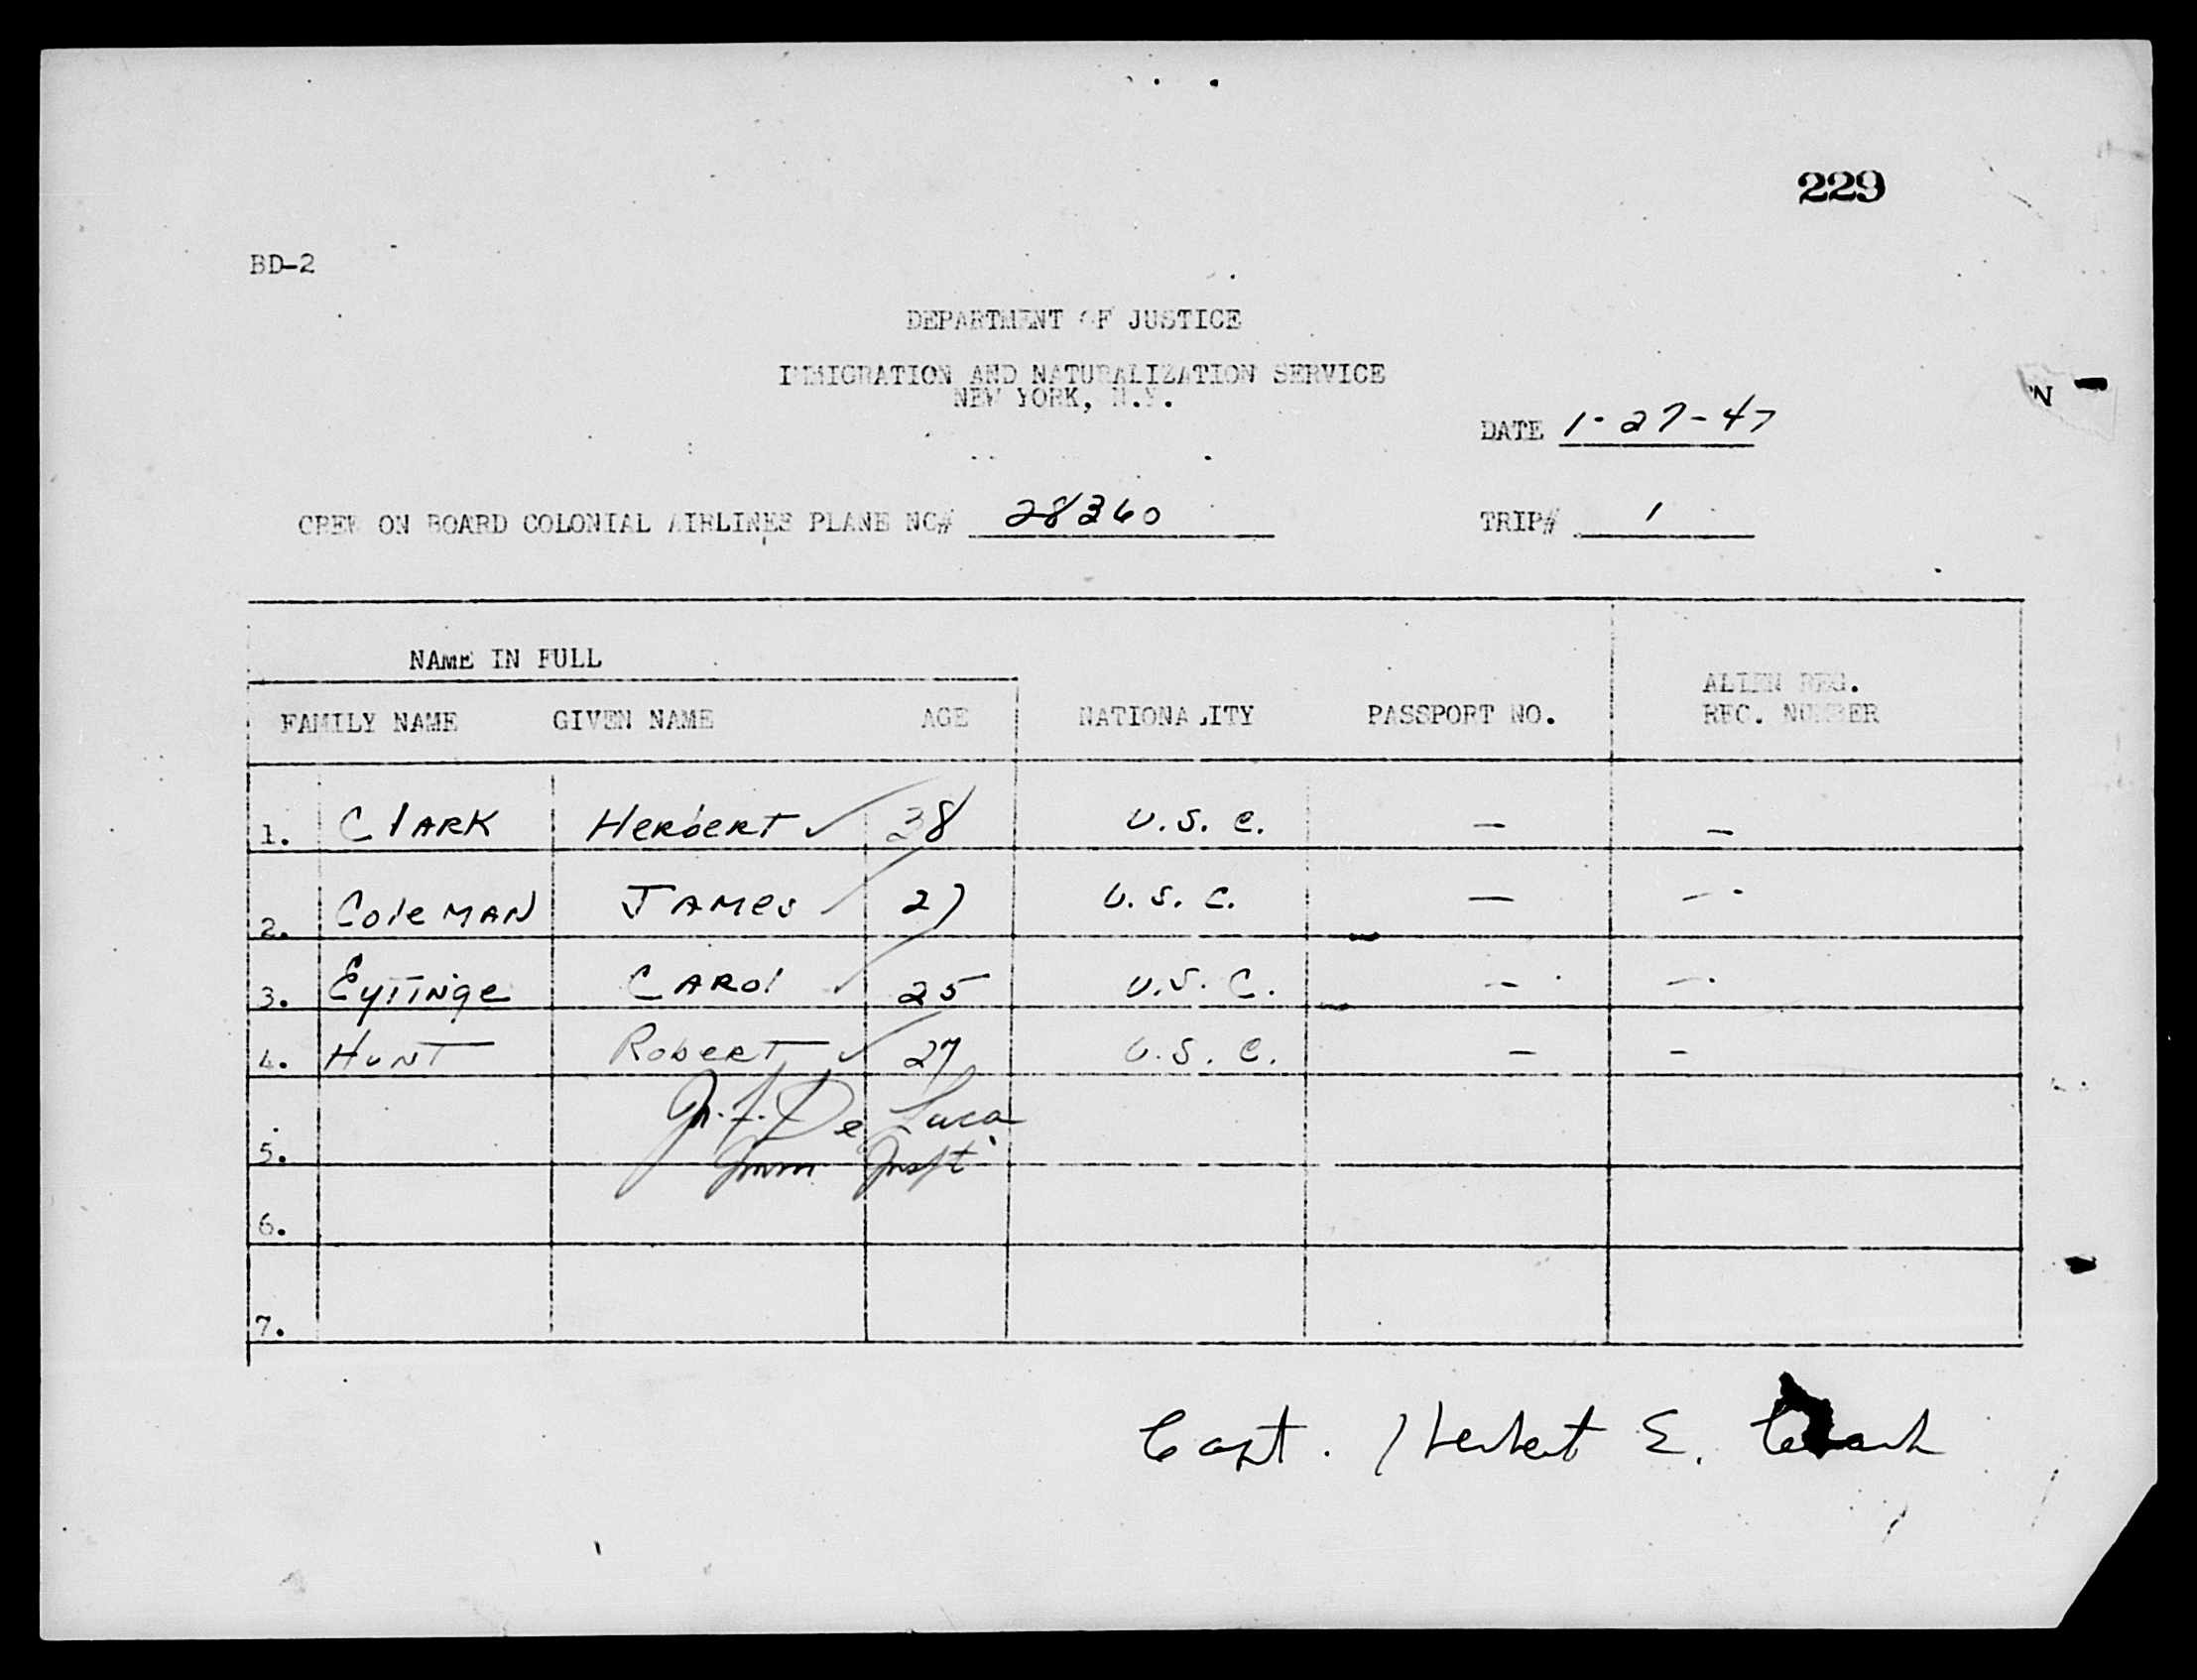 229
BD-2
DEPARTMENT OF JUSTICE
IMMIGRATION AND NATURALIZATION SERVICE
NEW YORK, N.Y.
DATE 1-27-47
CREW ON BOARD COLONIAL AIRLINES PLANE NC# 28360
TRIP# 1
NAME IN FULL
FAMILY NAME GIVEN NAME AGE NATIONALITY PASSPORT NO. ALIEN REG. REC. NUMBER
1. Clark Herbert ✓ 38 U.S.C. — —
2. Coleman James ✓ 27 U.S.C. — —
3. Eyttinge Carol ✓ 25 U.S.C. — —
4. Hunt Robert ✓ 27 U.S.C. — —
De Luca
5. Imm Inspt
6.
7.
Capt. Herbert E. Clark